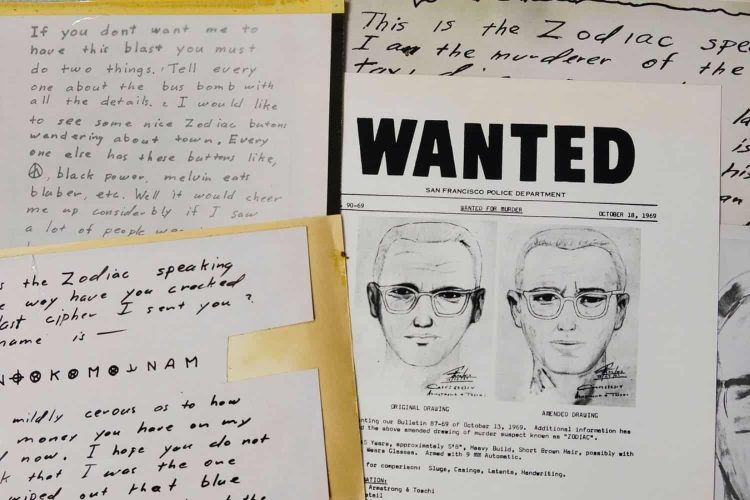 If you dont want me to
have this blast you must
do two things. 1 Tell every
one about the bus bomb with
all the details. 2 I would like
to see some nice Zodiac butons
wandering about town. Every
one else has these buttons like,
☮, black power, melvin eats
bluber, etc. Well it would cheer
me up considerbly if I saw
a lot of people
This is the Zodiac
I am the murderer of the
WANTED
SAN FRANCISCO POLICE DEPARTMENT
90-69 WANTED FOR MURDER OCTOBER 18, 1969
ORIGINAL DRAWING AMENDED DRAWING
our Bulletin 87-69 of October 13, 1969. Additional information has
the above amended drawing of murder suspect known as "ZODIAC".
Years, approximately 5'8", Heavy Build, Short Brown Hair, possibly with
Wears Glasses. Armed with 9 MM Automatic.
for comparison: Slugs, Casings, Latents, Handwriting.
Armstrong & Toschi
the Zodiac speaking
way have you cracked
cipher I sent you?
name is —
N⌖⊗K⊗M⊗⅃NAM
mildly cerous as to how
money you have on my
now. I hope you do not
that I was the one
wiped out that blue